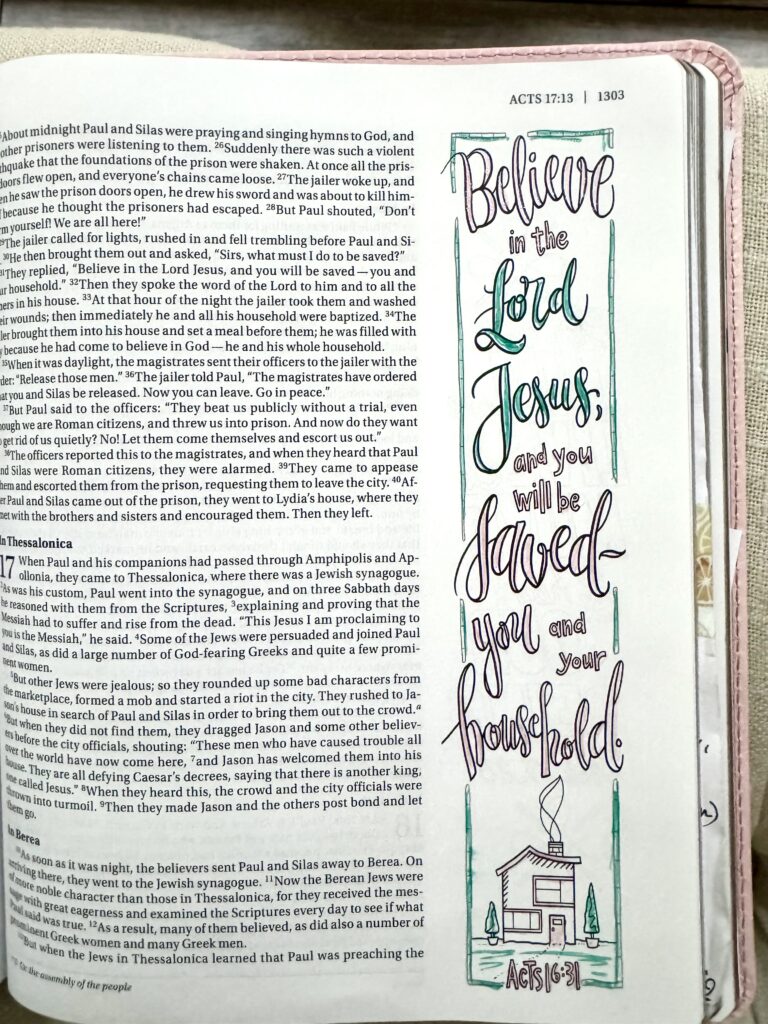 ACTS 17:13 | 1303
About midnight Paul and Silas were praying and singing hymns to God, and
other prisoners were listening to them. 26Suddenly there was such a violent
thquake that the foundations of the prison were shaken. At once all the pris-
doors flew open, and everyone's chains came loose. 27The jailer woke up, and
en he saw the prison doors open, he drew his sword and was about to kill him-
because he thought the prisoners had escaped. 28But Paul shouted, "Don't
m yourself! We are all here!"
29The jailer called for lights, rushed in and fell trembling before Paul and Si-
30He then brought them out and asked, "Sirs, what must I do to be saved?"
31They replied, "Believe in the Lord Jesus, and you will be saved—you and
ur household." 32Then they spoke the word of the Lord to him and to all the
ers in his house. 33At that hour of the night the jailer took them and washed
eir wounds; then immediately he and all his household were baptized. 34The
ler brought them into his house and set a meal before them; he was filled with
y because he had come to believe in God—he and his whole household.
35When it was daylight, the magistrates sent their officers to the jailer with the
der: "Release those men." 36The jailer told Paul, "The magistrates have ordered
at you and Silas be released. Now you can leave. Go in peace."
37But Paul said to the officers: "They beat us publicly without a trial, even
ough we are Roman citizens, and threw us into prison. And now do they want
get rid of us quietly? No! Let them come themselves and escort us out."
38The officers reported this to the magistrates, and when they heard that Paul
nd Silas were Roman citizens, they were alarmed. 39They came to appease
hem and escorted them from the prison, requesting them to leave the city. 40Af-
er Paul and Silas came out of the prison, they went to Lydia's house, where they
met with the brothers and sisters and encouraged them. Then they left.
In Thessalonica
17 When Paul and his companions had passed through Amphipolis and Ap-
ollonia, they came to Thessalonica, where there was a Jewish synagogue.
2As was his custom, Paul went into the synagogue, and on three Sabbath days
he reasoned with them from the Scriptures, 3explaining and proving that the
Messiah had to suffer and rise from the dead. "This Jesus I am proclaiming to
you is the Messiah," he said. 4Some of the Jews were persuaded and joined Paul
and Silas, as did a large number of God-fearing Greeks and quite a few promi-
nent women.
5But other Jews were jealous; so they rounded up some bad characters from
the marketplace, formed a mob and started a riot in the city. They rushed to Ja-
son's house in search of Paul and Silas in order to bring them out to the crowd.a
6But when they did not find them, they dragged Jason and some other believ-
ers before the city officials, shouting: "These men who have caused trouble all
over the world have now come here, 7and Jason has welcomed them into his
house. They are all defying Caesar's decrees, saying that there is another king,
one called Jesus." 8When they heard this, the crowd and the city officials were
thrown into turmoil. 9Then they made Jason and the others post bond and let
them go.
In Berea
10As soon as it was night, the believers sent Paul and Silas away to Berea. On
arriving there, they went to the Jewish synagogue. 11Now the Berean Jews were
of more noble character than those in Thessalonica, for they received the mes-
sage with great eagerness and examined the Scriptures every day to see if what
Paul said was true. 12As a result, many of them believed, as did also a number of
prominent Greek women and many Greek men.
13But when the Jews in Thessalonica learned that Paul was preaching the
Or the assembly of the people
Believe
in the
Lord
Jesus,
and you
will be
saved-
you and
your
household.
ACTS 16:31